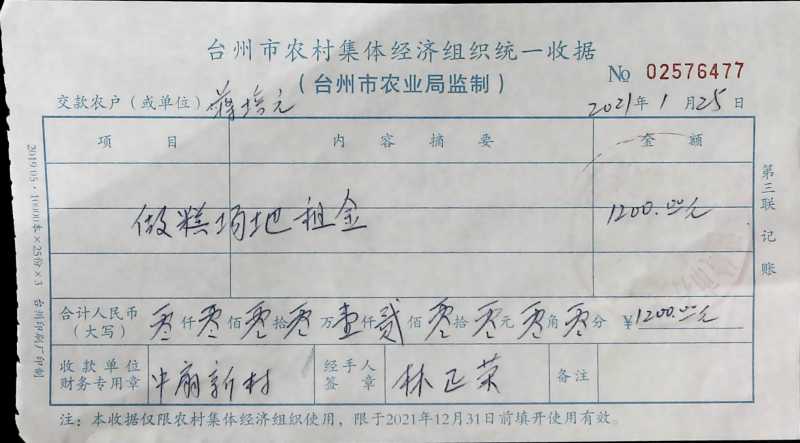 台州市农村集体经济组织统一收据
（台州市农业局监制）
No 02576477
交款农户（或单位） 蒋培元 2021年1月25日
项目 内容摘要 金额
做糕场地租金 1200.00元
合计人民币（大写） 零仟零佰零拾零万壹仟贰佰零拾零元零角零分 ¥1200.00元
收款单位财务专用章 牛扇新村 经手人签章 林正荣 备注
注：本收据仅限农村集体经济组织使用，限于2021年12月31日前填开使用有效。
第三联 记账
2019.05·10000本×25份×3 台州印刷厂印制